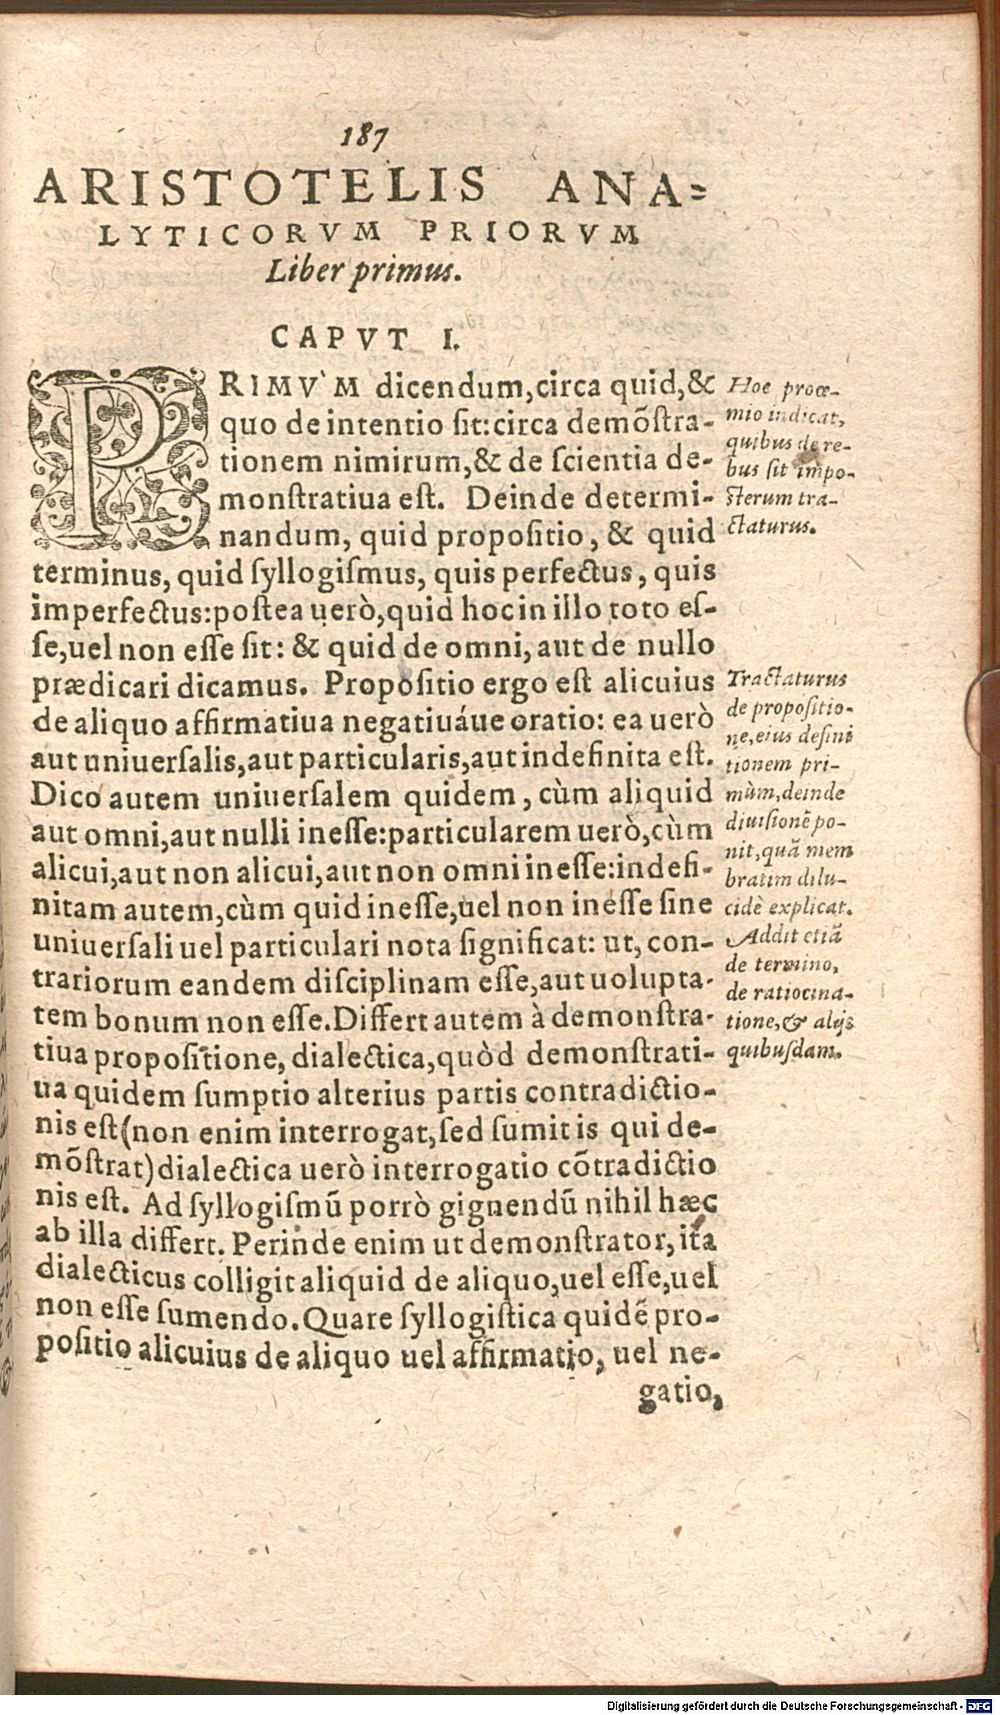 187
ARISTOTELIS ANA=
LYTICORVM PRIORVM
Liber primus.
CAPVT I.
PRIMV̀M dicendum,circa quid,&
quo de intentio sit:circa demõstra-
tionem nimirum,& de scientia de-
monstratiua est. Deinde determi-
nandum, quid propositio, & quid
terminus, quid syllogismus, quis perfectus, quis
imperfectus:postea uerò,quid hoc in illo toto es-
se,uel non esse sit: & quid de omni, aut de nullo
prædicari dicamus. Propositio ergo est alicuius
de aliquo affirmatiua negatiuáue oratio: ea uerò
aut uniuersalis,aut particularis,aut indefinita est.
Dico autem uniuersalem quidem, cùm aliquid
aut omni,aut nulli inesse:particularem uerò,cùm
alicui,aut non alicui,aut non omni inesse:indefi-
nitam autem,cùm quid inesse,uel non inesse sine
uniuersali uel particulari nota significat: ut, con-
trariorum eandem disciplinam esse,aut uolupta-
tem bonum non esse.Differt autem à demonstra-
tiua propositione, dialectica,quòd demonstrati-
ua quidem sumptio alterius partis contradictio-
nis est(non enim interrogat,sed sumit is qui de-
mõstrat)dialectica uerò interrogatio cõtradictio
nis est. Ad syllogismũ porrò gignendũ nihil hæc
ab illa differt. Perinde enim ut demonstrator, ita
dialecticus colligit aliquid de aliquo,uel esse,uel
non esse sumendo. Quare syllogistica quidẽ pro-
positio alicuius de aliquo uel affirmatio, uel ne-
gatio,
Hoc proœ-
mio indicat,
quibus de re-
bus sit impo-
sterum tra-
ctaturus.
Tractaturus
de propositio-
ne,eius defini
tionem pri-
mùm,deinde
diuisionẽ po-
nit,quã mem
bratim dilu-
cidè explicat.
Addit etiã
de termino,
de ratiocina-
tione,& alijs
quibusdam.
Digitalisierung gefördert durch die Deutsche Forschungsgemeinschaft - DFG